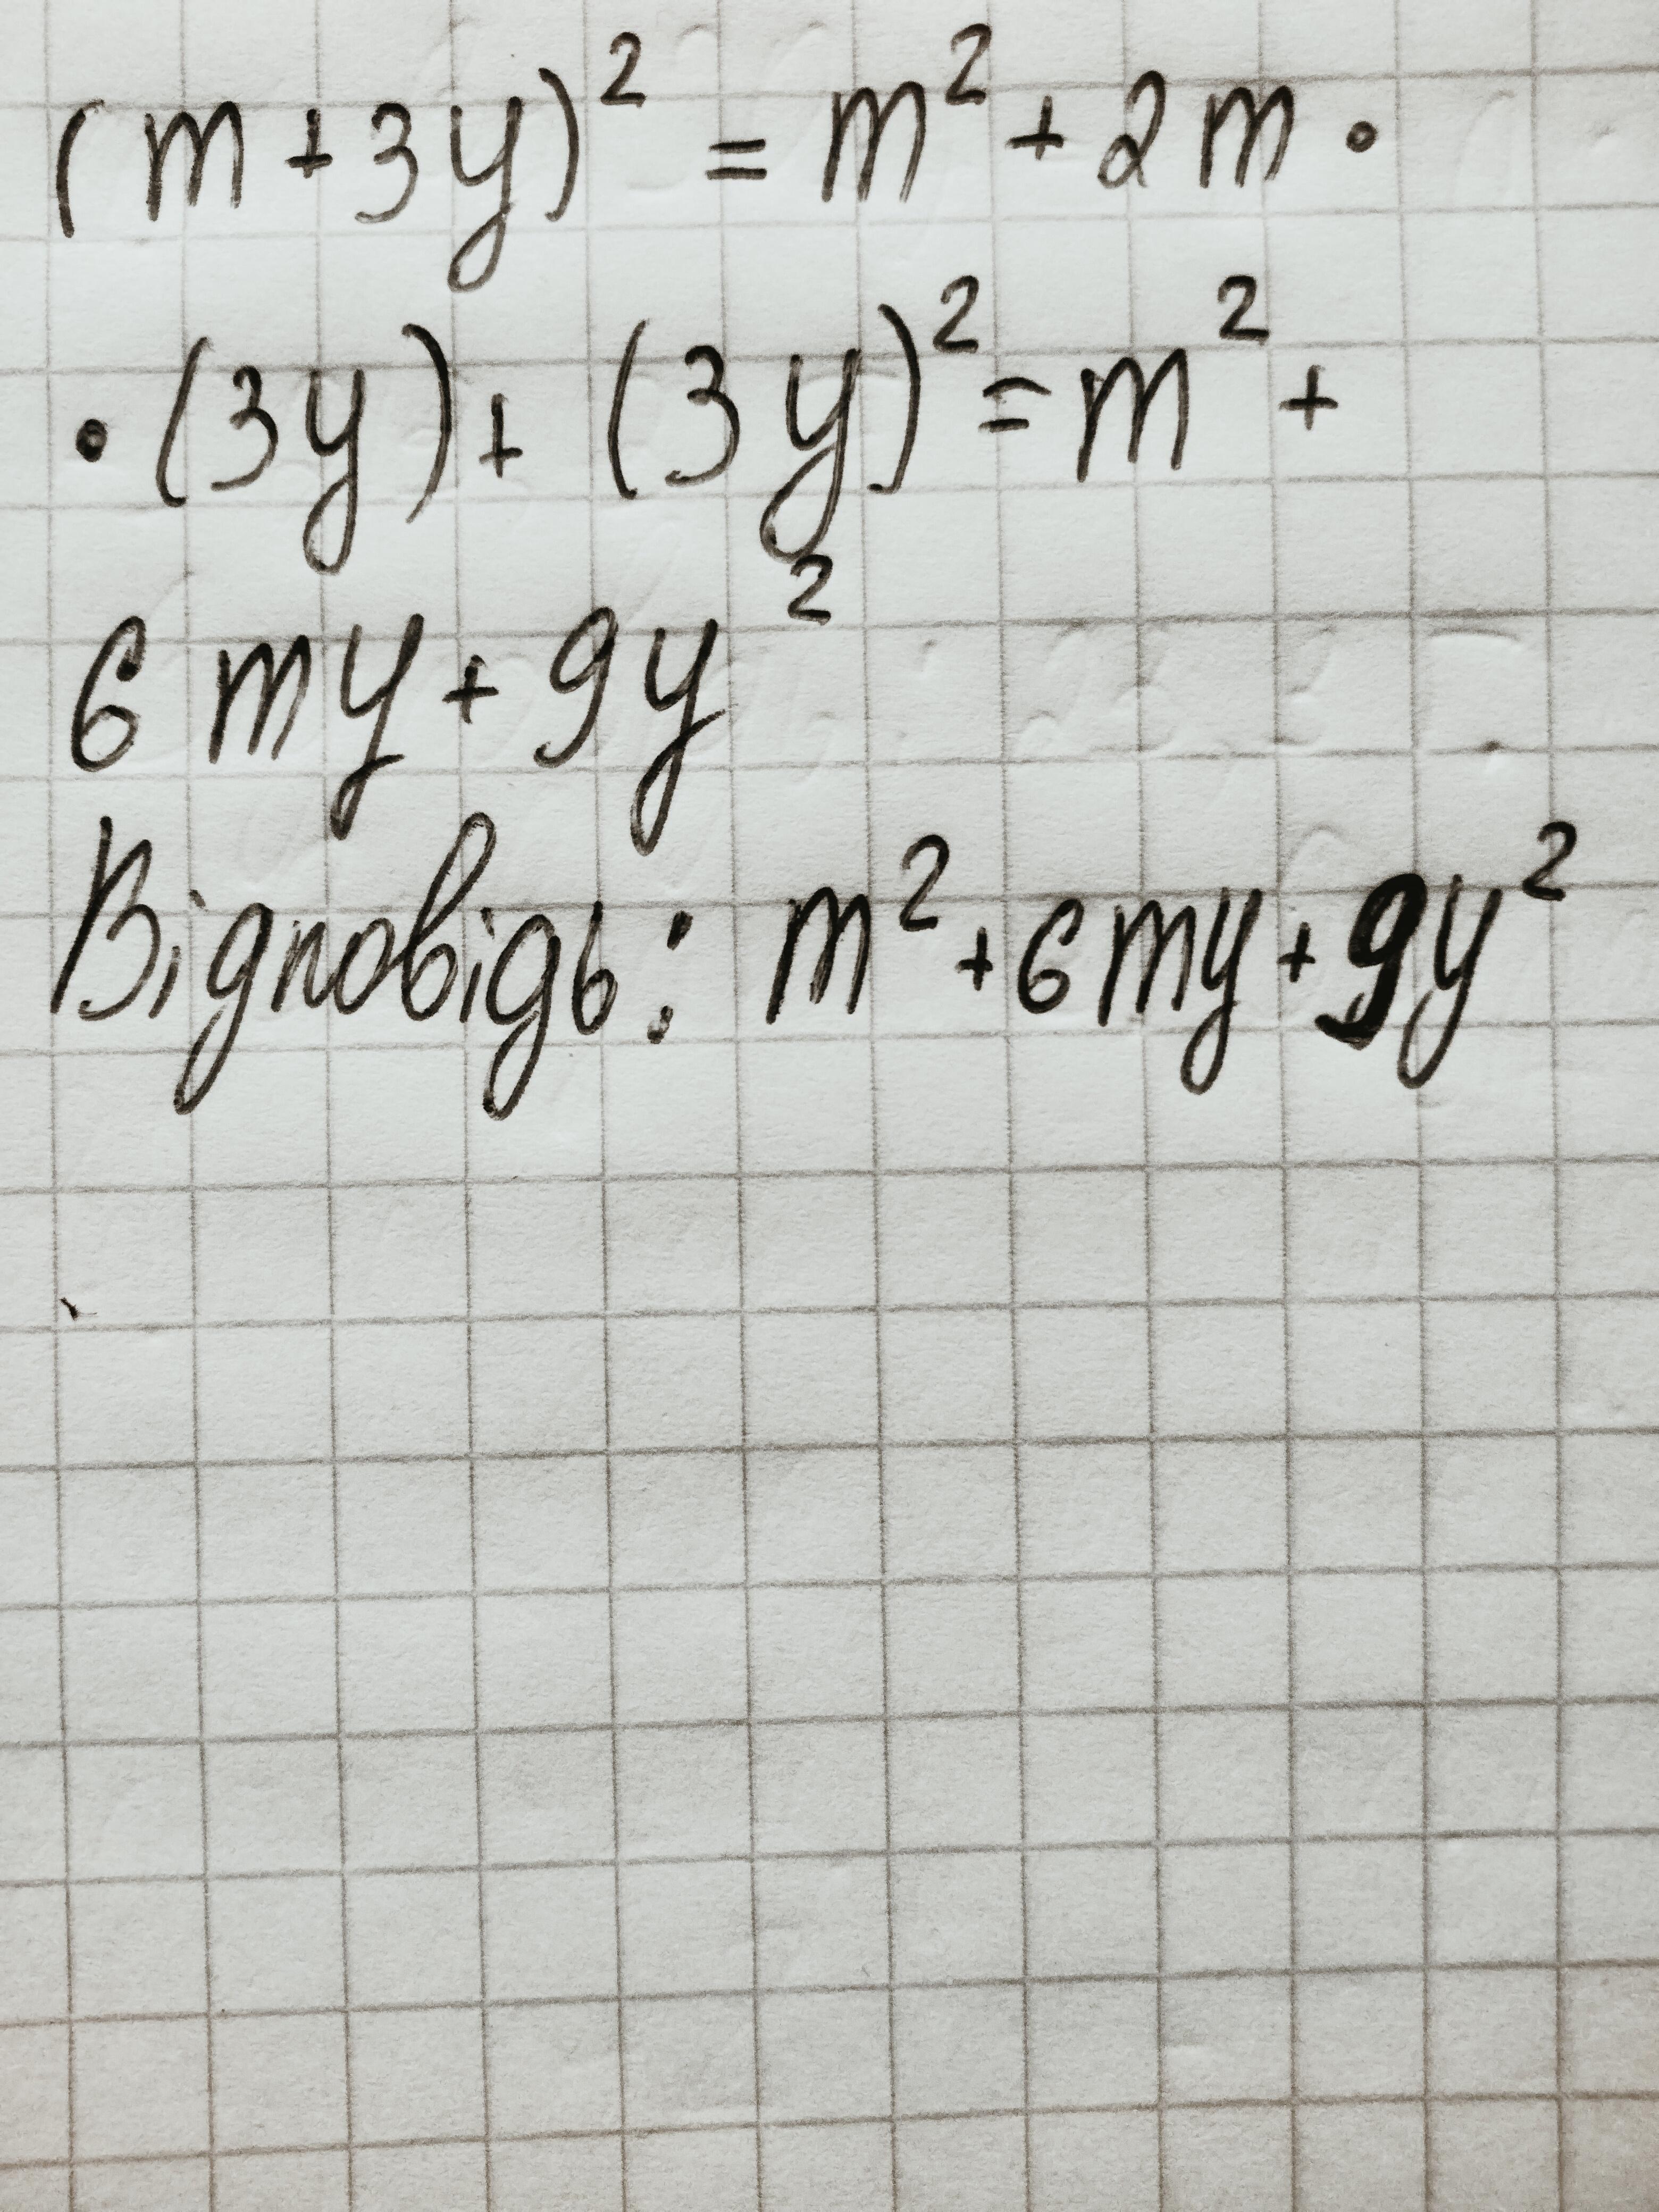 (m + 3y)² = m² + 2m ·
· (3y) + (3y)² = m² +
6my + 9y²
Відповідь: m² + 6my + 9y²